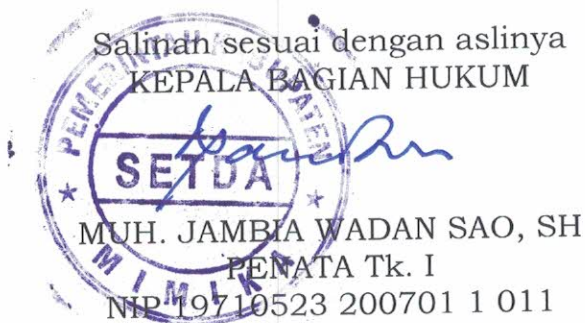 Salinan sesuai dengan aslinya
KEPALA BAGIAN HUKUM
PEMERINTAH KABUPATEN
SETDA
MIMIKA
MUH. JAMBIA WADAN SAO, SH
PENATA Tk. I
NIP 19710523 200701 1 011